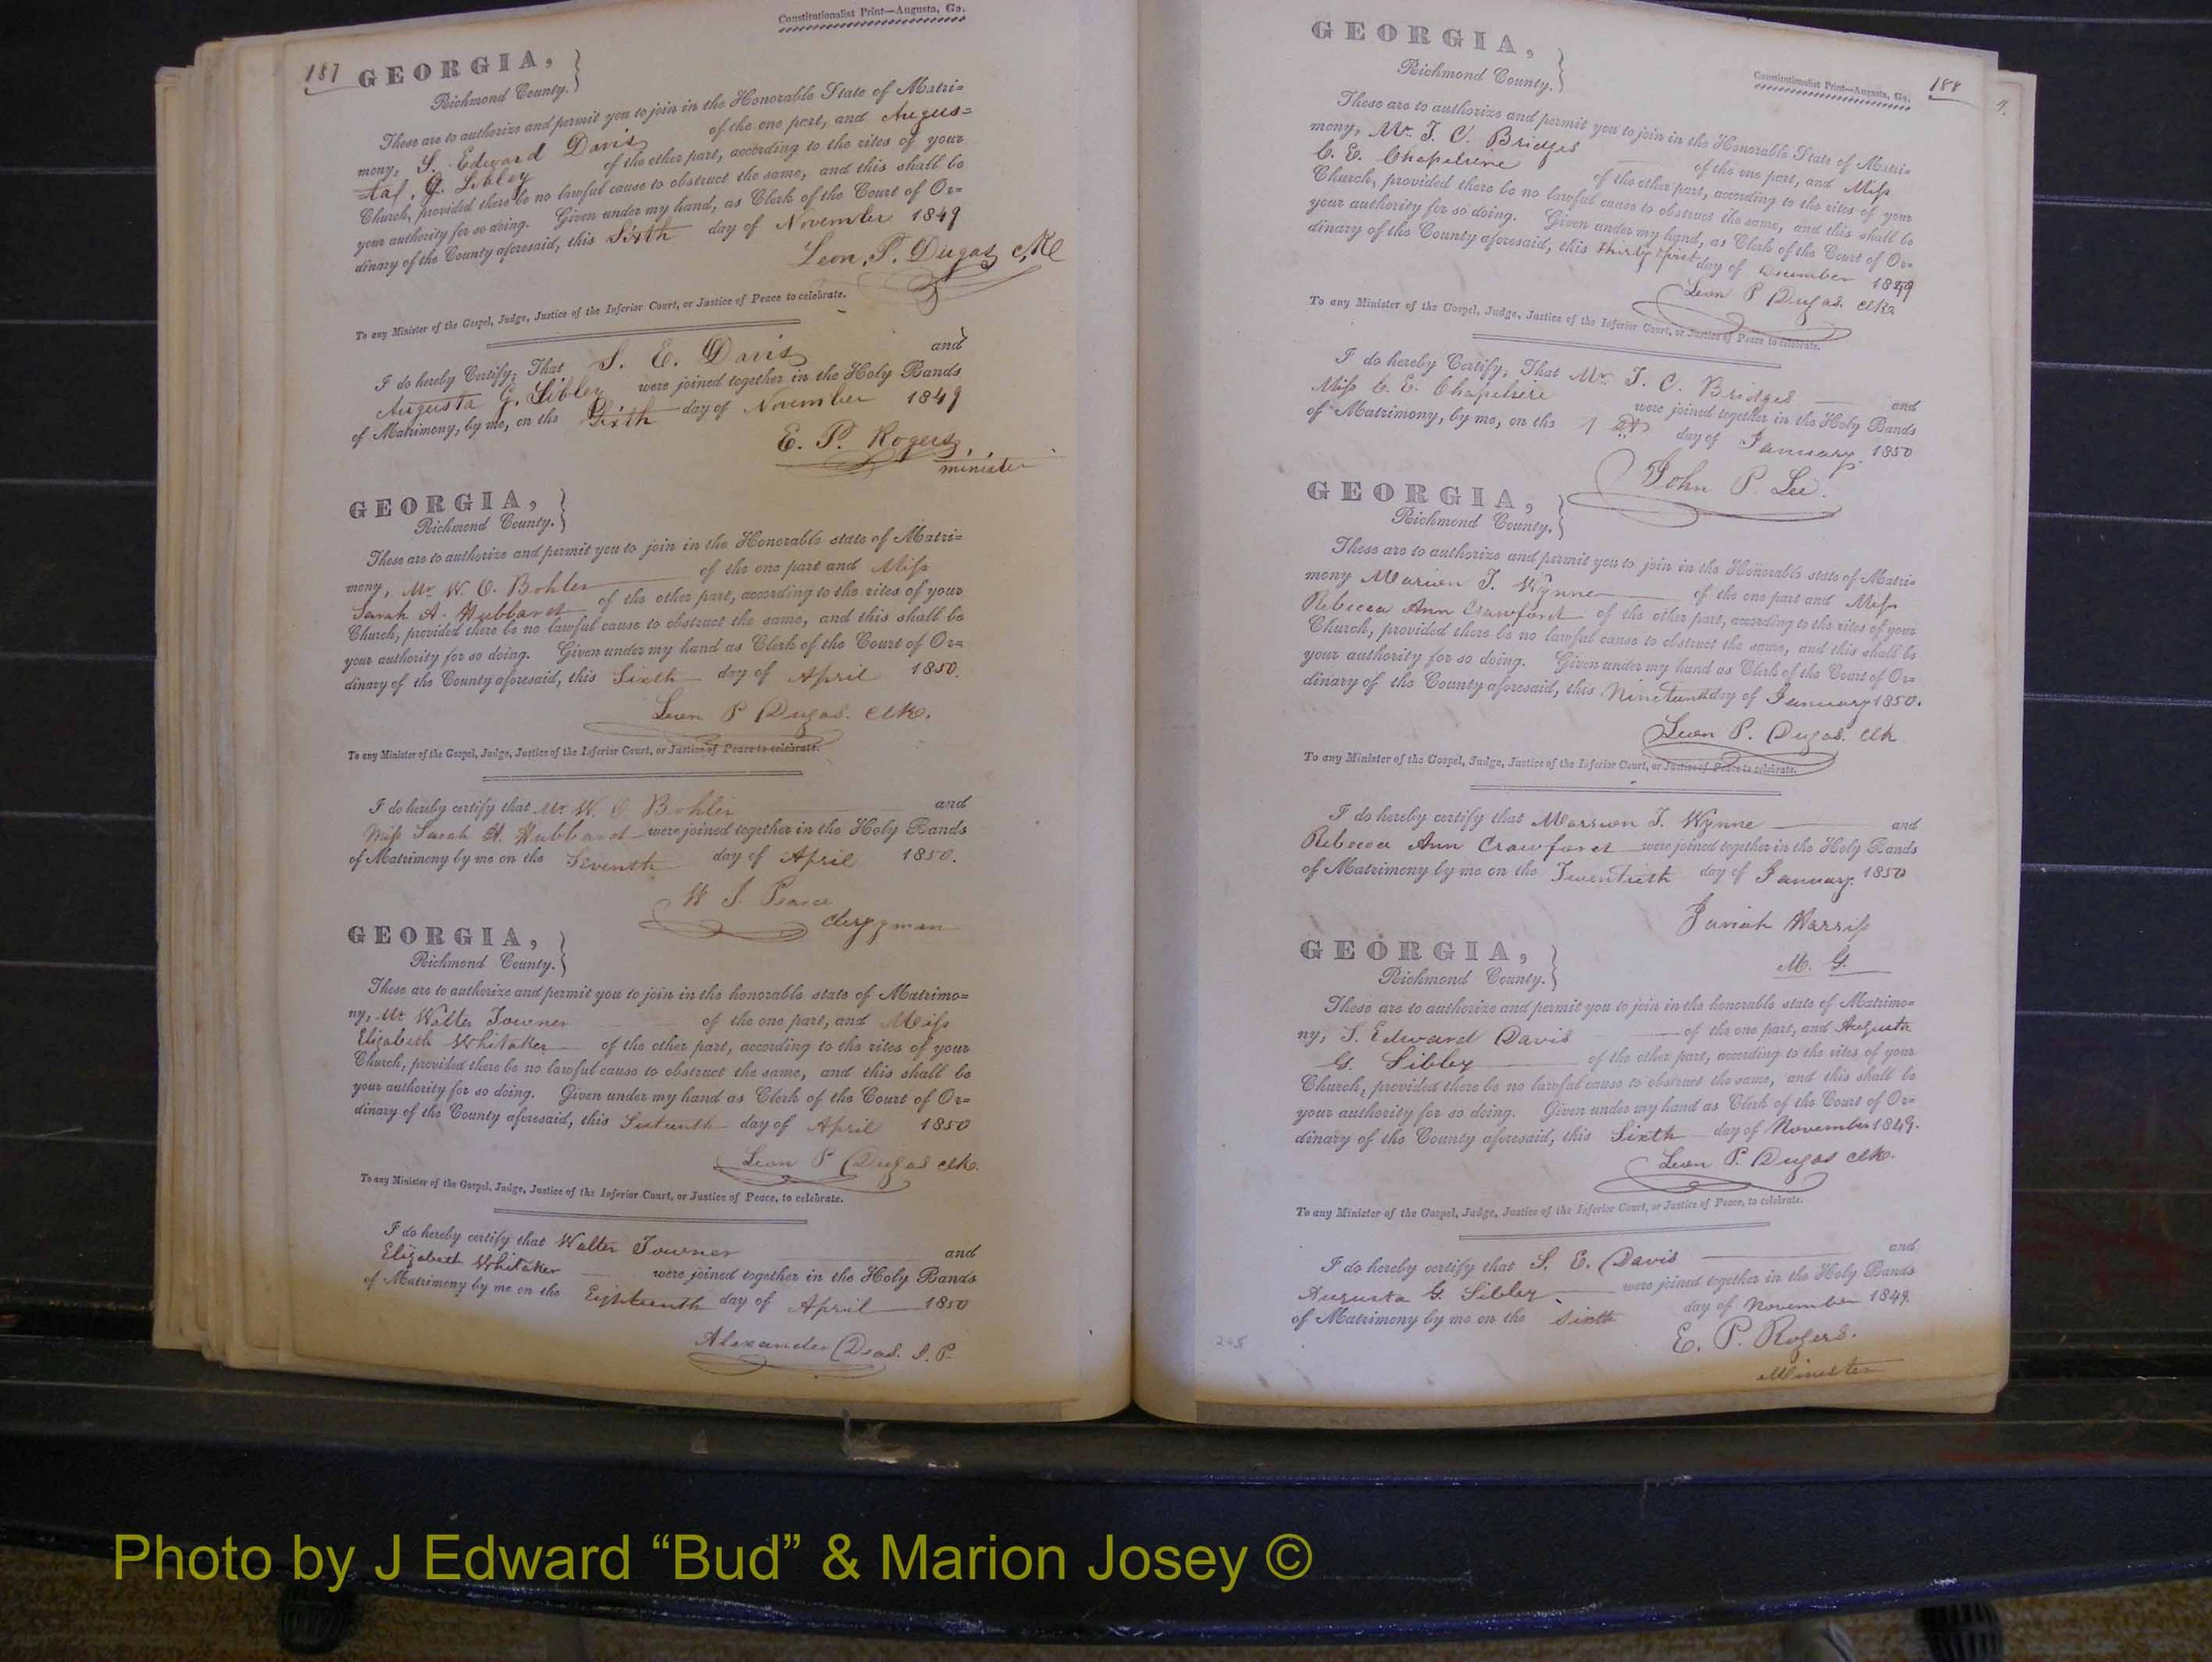 Constitutionalist Print—Augusta, Ga.
187 GEORGIA,
Richmond County.
These are to authorize and permit you to join in the Honorable State of Matri=
mony, S. Edward Davis of the one part, and Augus=
ta G. Sibley of the other part, according to the rites of your
Church, provided there be no lawful cause to obstruct the same, and this shall be
your authority for so doing. Given under my hand, as Clerk of the Court of Or=
dinary of the County aforesaid, this Sixth day of November 1849
Leon P. Dugas
To any Minister of the Gospel, Judge, Justice of the Inferior Court, or Justice of Peace to celebrate.
I do hereby Certify, That S. E. Davis and
Augusta G. Sibley were joined together in the Holy Bands
of Matrimony, by me, on the Sixth day of November 1849
E. P. Rogers,
minister
GEORGIA,
Richmond County.
These are to authorize and permit you to join in the Honorable state of Matri=
mony, Mr. W. O. Bohler of the one part and Miss
Sarah A. Hubbard of the other part, according to the rites of your
Church, provided there be no lawful cause to obstruct the same, and this shall be
your authority for so doing. Given under my hand as Clerk of the Court of Or=
dinary of the County aforesaid, this Sixth day of April 1850.
Leon P Dugas. Clk.
To any Minister of the Gospel, Judge, Justice of the Inferior Court, or Justice of Peace to celebrate.
I do hereby certify that Mr W. O Bohler and
Miss Sarah A. Hubbard were joined together in the Holy Bands
of Matrimony by me on the Seventh day of April 1850.
W J. Pearce
Clergyman
GEORGIA,
Richmond County.
These are to authorize and permit you to join in the honorable state of Matrimo=
ny, Mr Walter Towner of the one part, and Miss
Elizabeth Whitaker of the other part, according to the rites of your
Church, provided there be no lawful cause to obstruct the same, and this shall be
your authority for so doing. Given under my hand as Clerk of the Court of Or=
dinary of the County aforesaid, this Sixteenth day of April 1850
Leon P Dugas Clk.
To any Minister of the Gospel, Judge, Justice of the Inferior Court, or Justice of Peace, to celebrate.
I do hereby certify that Walter Towner and
Elizabeth Whitaker were joined together in the Holy Bands
of Matrimony by me on the Eighteenth day of April 1850
Alexander Deas. J. P.
GEORGIA,
Richmond County.
Constitutionalist Print—Augusta, Ga. 188
These are to authorize and permit you to join in the Honorable State of Matri=
mony, Mr. T. C. Bridges of the one part, and Miss
C. E. of the other part, according to the rites of your
Church, provided there be no lawful cause to obstruct the same, and this shall be
your authority for so doing. Given under my hand, as Clerk of the Court of Or=
dinary of the County aforesaid, this Thirty first day of December 1849
Leon P Dugas. Clk.
To any Minister of the Gospel, Judge, Justice of the Inferior Court, or Justice of Peace to celebrate.
I do hereby Certify, That Mr. T. C. Bridges and
Miss C. E. were joined together in the Holy Bands
of Matrimony, by me, on the 1st day of January 1850
John P. Lee.
GEORGIA,
Richmond County.
These are to authorize and permit you to join in the Honorable state of Matri=
mony Marion T. Wynne of the one part and Miss
Rebecca Ann Crawford of the other part, according to the rites of your
Church, provided there be no lawful cause to obstruct the same, and this shall be
your authority for so doing. Given under my hand as Clerk of the Court of Or=
dinary of the County aforesaid, this Nineteenth day of January 1850.
Leon P. Dugas. Clk
To any Minister of the Gospel, Judge, Justice of the Inferior Court, or Justice of Peace to celebrate.
I do hereby certify that Marrion T. Wynne and
Rebecca Ann Crawford were joined together in the Holy Bands
of Matrimony by me on the Twentieth day of January 1850
Juriah Harriss
M. G.
GEORGIA,
Richmond County.
These are to authorize and permit you to join in the honorable state of Matrimo=
ny, S. Edward Davis of the one part, and Augusta
G. Sibley of the other part, according to the rites of your
Church, provided there be no lawful cause to obstruct the same, and this shall be
your authority for so doing. Given under my hand as Clerk of the Court of Or=
dinary of the County aforesaid, this Sixth day of November 1849.
Leon P. Dugas Clk.
To any Minister of the Gospel, Judge, Justice of the Inferior Court, or Justice of Peace, to celebrate.
I do hereby certify that S. E. Davis and
Augusta G. Sibley were joined together in the Holy Bands
of Matrimony by me on the Sixth day of November 1849.
E. P. Rogers.
Minister
Photo by J Edward “Bud” & Marion Josey ©